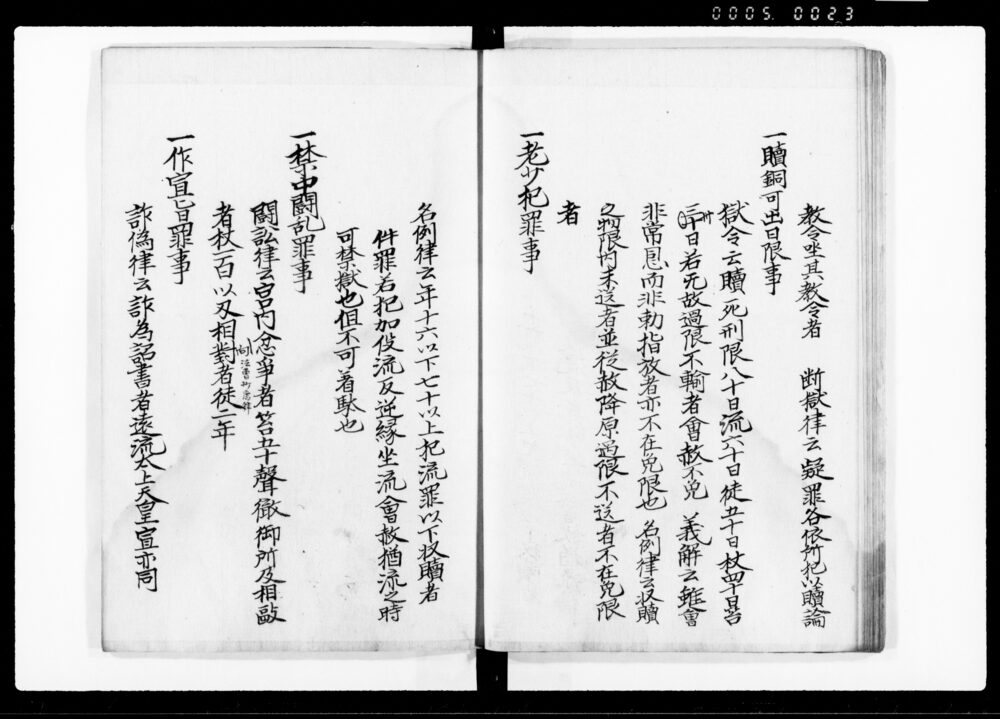 0005 0023
教令坐其教令者 断獄律云疑罪各依所犯以贖論
一贖銅可出日限事
獄令云贖死刑限八十日流六十日徒五十日杖四十日笞
卅日若无故過限不輸者會赦不免 義解云雖會
非常恩而非勅指放者亦不在免限也 名例律云収贖
之物限内未送者並従赦降原過限不送者不在免限
者
一老少犯罪事
名例律云年十六以下七十以上犯流罪以下収贖者
件罪若犯加役流反逆縁坐流會赦猶流之時
可禁獄也但不可着駄也
一禁中闘乱罪事
闘訟律云宮内忿争者笞五十聲徹御所及相毆
者杖一百以刃相對者徒二年
一作宣旨罪事
詐偽律云詐為詔書者遠流太上天皇宣亦同